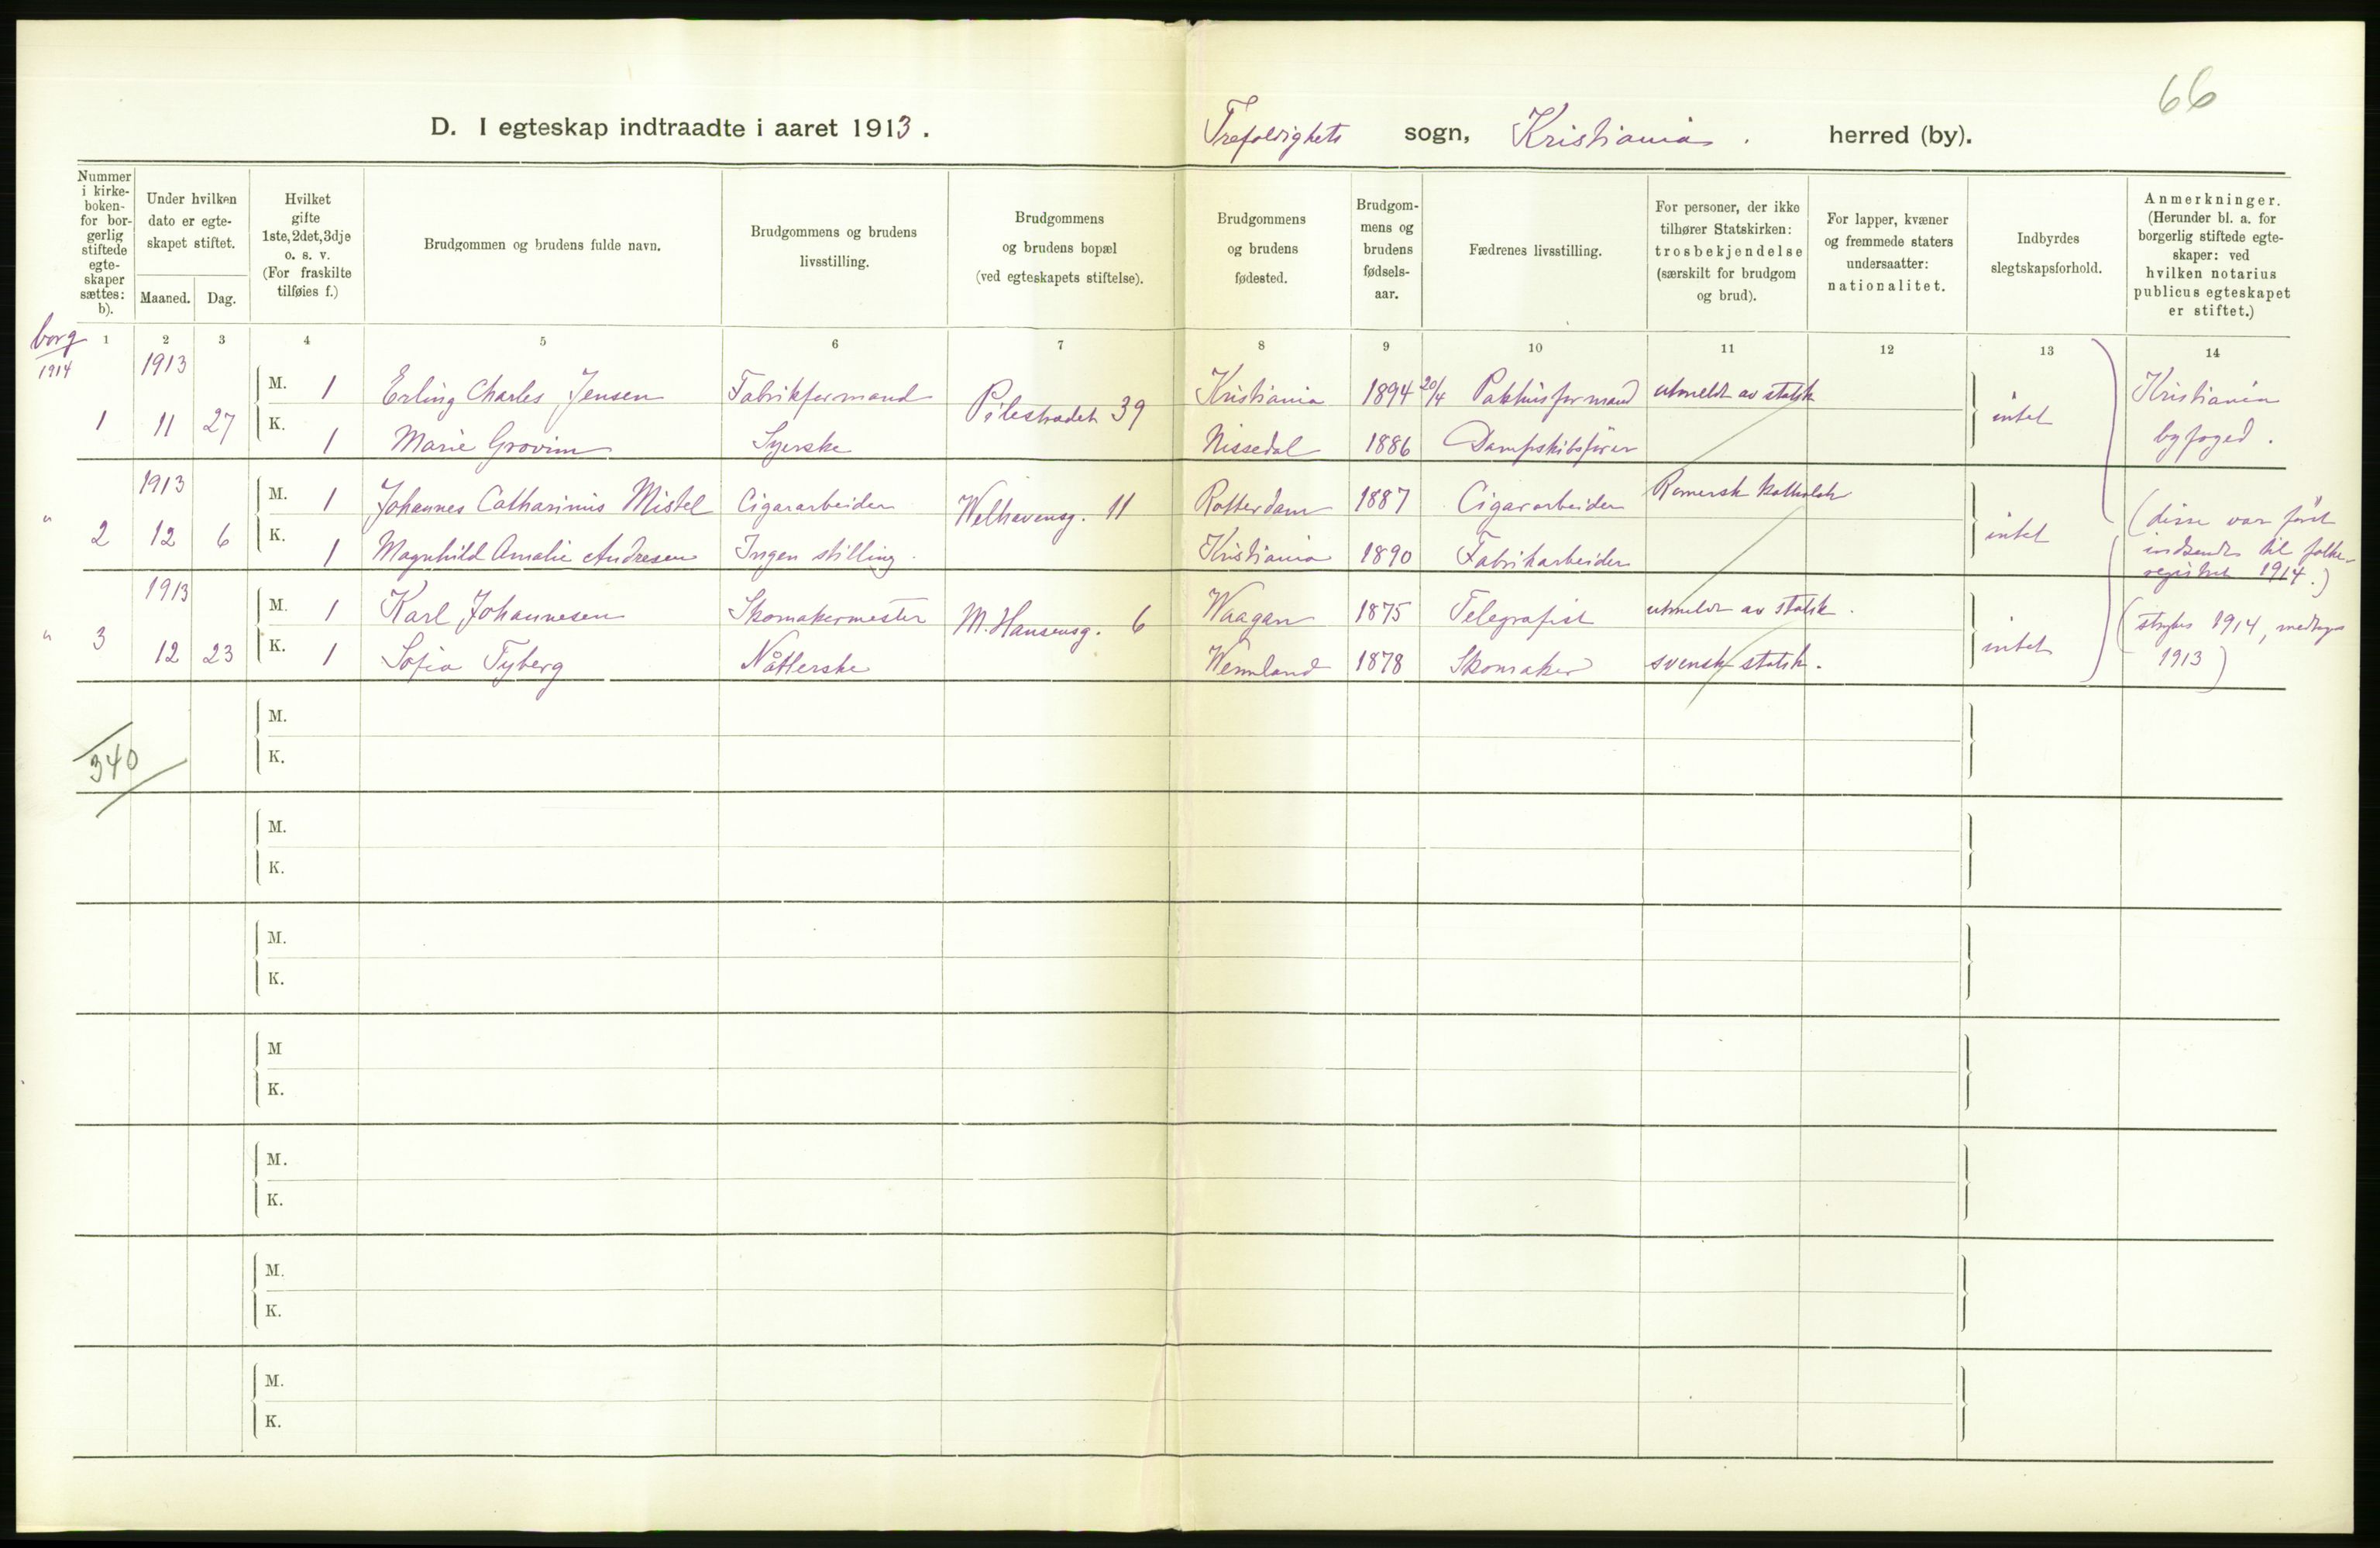 66
D. I egteskap indtraadte i aaret 1913.
Trefoldighets sogn, Kristiania. herred (by).
Nummer i kirke-boken- for bor-gerlig stiftede egte-skaper sættes: b).
Under hvilken dato er egte-skapet stiftet.
Maaned. Dag.
Hvilket gifte 1ste, 2det, 3dje o. s. v. (For fraskilte tilføies f.)
Brudgommen og brudens fulde navn.
Brudgommens og brudens livsstilling.
Brudgommens og brudens bopæl (ved egteskapets stiftelse).
Brudgommens og brudens fødested.
Brudgom-mens og brudens fødsels-aar.
Fædrenes livsstilling.
For personer, der ikke tilhører Statskirken: trosbekjendelse (særskilt for brudgom og brud).
For lapper, kvæner og fremmede staters undersaatter: nationalitet.
Indbyrdes slegtskapsforhold.
Anmerkninger. (Herunder bl. a. for borgerlig stiftede egte-skaper: ved hvilken notarius publicus egteskapet er stiftet.)
1 2 3 4 5 6 7 8 9 10 11 12 13 14
borg
1914
1913
M. 1 Erling Charles Jensen Fabrikformand Pilestrædet 39 Kristiania 1894 20/4 Pakhusformand utmeldt av statsk
1 11 27 intet Kristiania byfoged.
K. 1 Marie Grovim Syerske Nissedal 1886 Dampskibsfører
1913
M. 1 Johannes Catharinus Mistel Cigararbeider Welhavensg. 11 Rotterdam 1887 Cigararbeider Romersk katholsk
" 2 12 6 intet
K. 1 Magnhild Amalie Andresen Ingen stilling. Kristiania 1890 Fabrikarbeider
(disse var først
indsendt til folke-
registret 1914.)
1913
M. 1 Karl Johannesen Skomakermester M. Hansensg. 6 Waagan 1875 Telegrafist utmeldt av statsk.
" 3 12 23 intet
K. 1 Sofia Tyberg Nåtlerske Wermland 1878 Skomaker svensk statsk.
(strykes 1914, medtages
1913)
340
M.
K.
M.
K.
M.
K.
M
K.
M.
K.
M.
K.
M.
K.